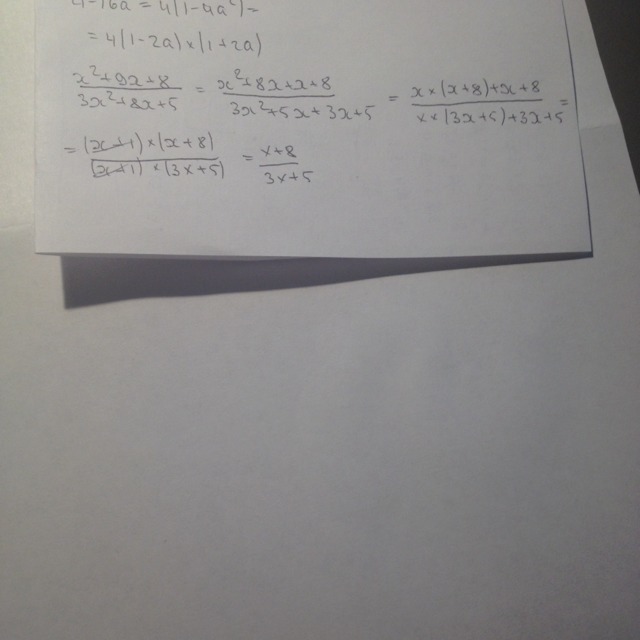 4-16a² = 4(1-4a²)=
= 4(1-2a)×(1+2a)
x²+9x+8 / 3x²+8x+5 = x²+8x+x+8 / 3x²+5x+3x+5 = x×(x+8)+x+8 / x×(3x+5)+3x+5 =
= (x+1)×(x+8) / (x+1)×(3x+5) = x+8 / 3x+5